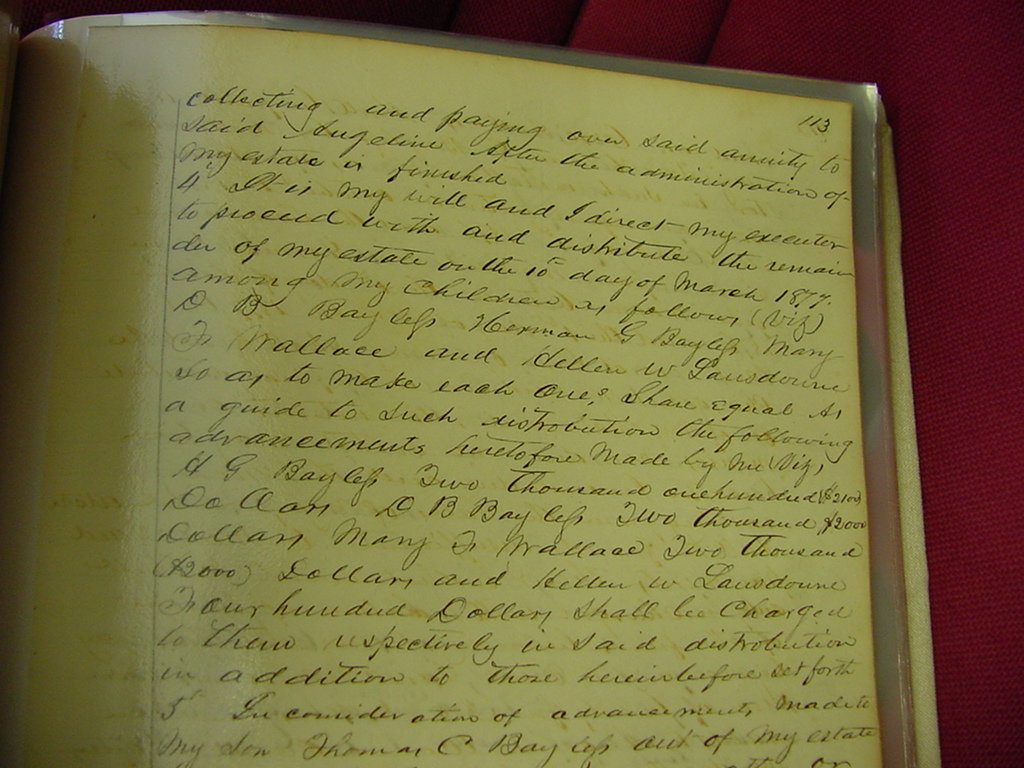 113
collecting and paying over said annuity to
said Angeline After the administration of
my estate is finished
4 It is my will and I direct my executor
to proceed with and distribute the remain
der of my estate on the 10th day of March 1877.
among my Children as follows (Viz)
D B Bayless Herman G Bayless Mary
F. Wallace and Hellen W Lansdowne
so as to make each One's Share equal As
a guide to such distrobution the following
advancements heretofore Made by me Viz,
H G Bayless Two thousand one hundred ($2100)
Dollars D B Bayless Two thousand $2000
Dollars Mary F. Wallace Two thousand
($2000) Dollars and Hellen W Lansdowne
Four hundred Dollars Shall be Charged
to them respectively in said distrobution
in addition to those hereinbefore set forth
5th In consideration of advancements made to
My Son Thomas C Bayless out of my estate